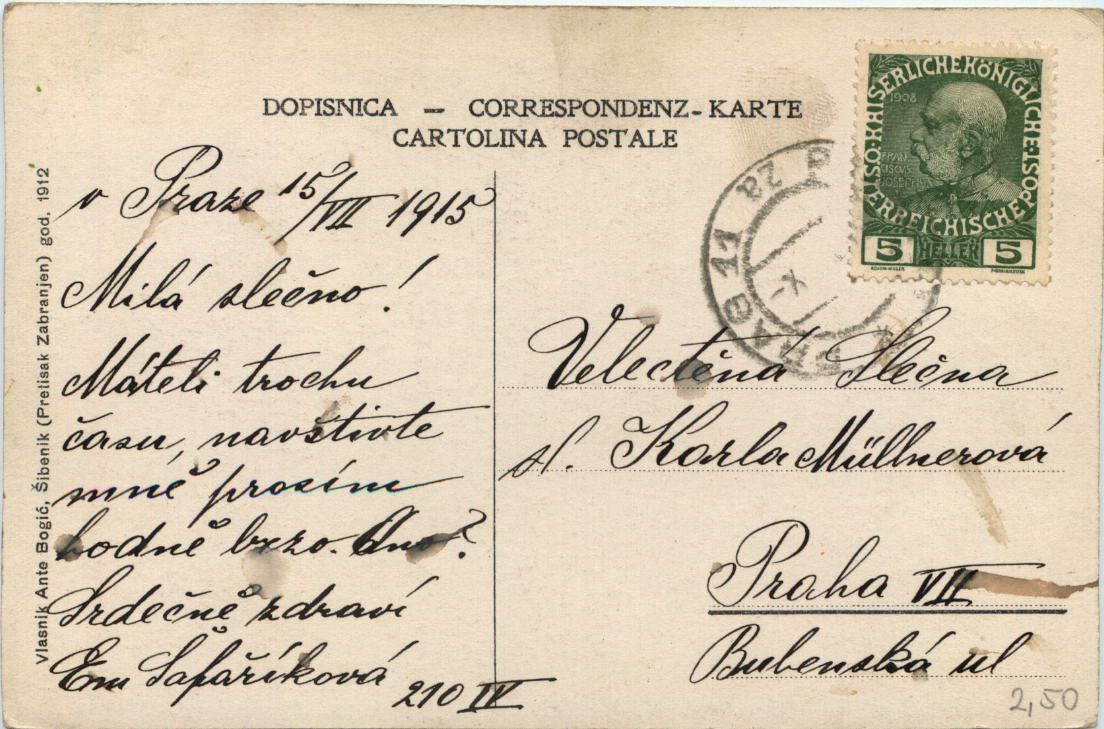 DOPISNICA — CORRESPONDENZ-KARTE
CARTOLINA POSTALE
v Praze 15/VII 1915
Milá slečno!
Máteli trochu
času, navštivte
mně prosím
hodně brzo. Ano?
Srdečně zdraví
Em Šafaříková
Velectěná Slečna
sl. Karla Müllnerová
Praha VII
Bubenská ul
210 IV
2,50
Vlasnik Ante Bogić, Šibenik (Pretisak Zabranjen) god. 1912
KAISERLICHE KÖNIGLICHE ÖSTERREICHISCHE POST
1908
5 HELLER 5
PRAG 11